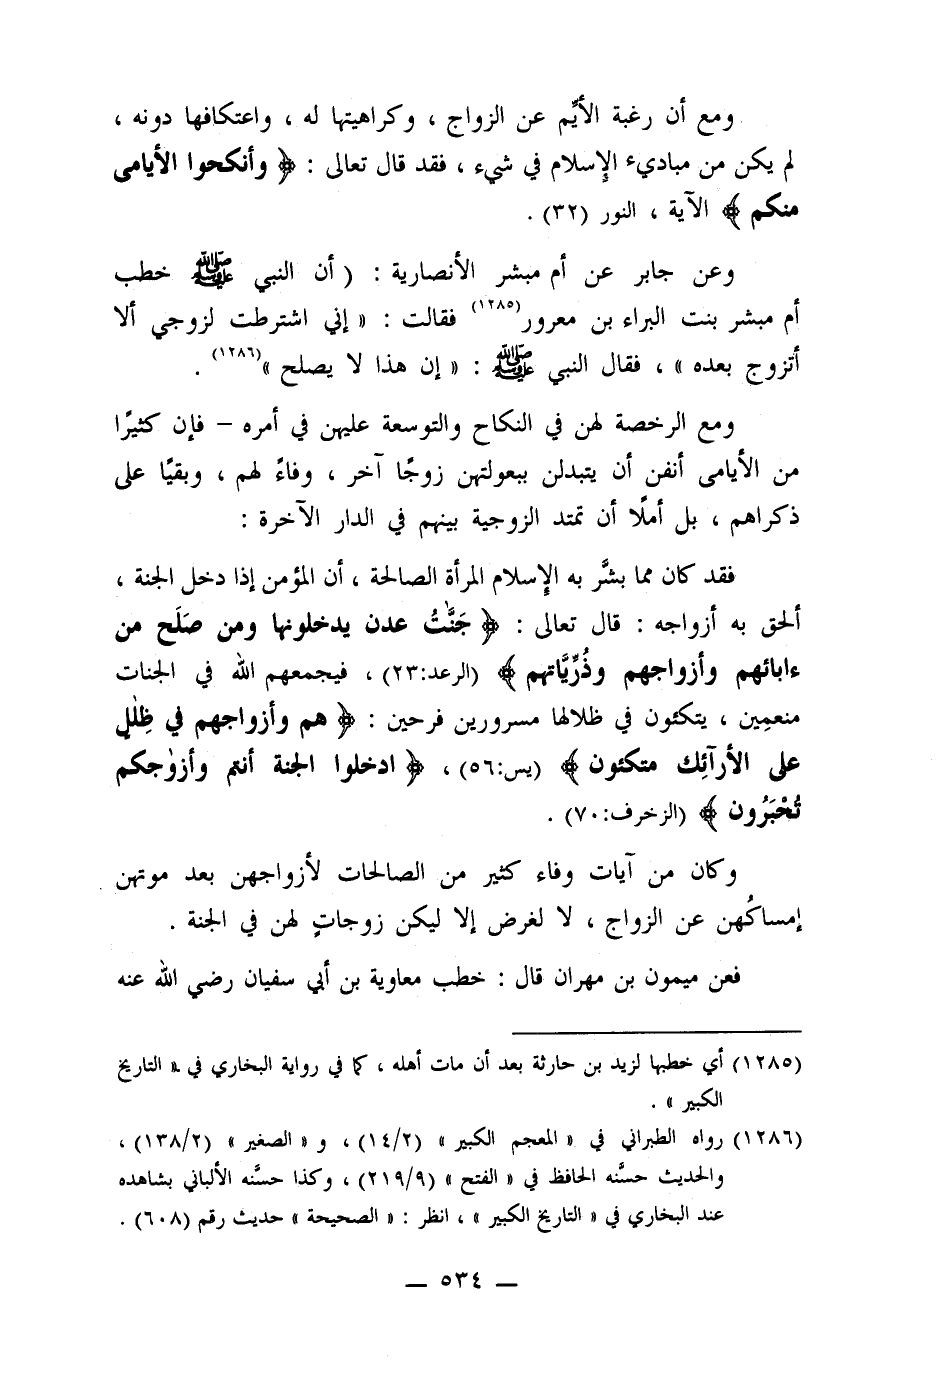 ومع أن رغبة الأيِّم عن الزواج ، وكراهيتها له ، واعتكافها دونه ،
لم يكن من مباديء الإسلام في شيء ، فقد قال تعالى : ﴿ وأنكحوا الأيامى
منكم ﴾ الآية ، النور (٣٢) .
وعن جابر عن أم مبشر الأنصارية : ( أن النبي ﷺ خطب
أم مبشر بنت البراء بن معرور(١٢٨٥) فقالت : « إني اشترطت لزوجي ألا
أتزوج بعده » ، فقال النبي ﷺ : « إن هذا لا يصلح »(١٢٨٦) .
ومع الرخصة لهن في النكاح والتوسعة عليهن في أمره – فإن كثيرًا
من الأيامى أنفن أن يتبدلن ببعولتهن زوجًا آخر ، وفاءً لهم ، وبقيًا على
ذكراهم ، بل أملًا أن تمتد الزوجية بينهم في الدار الآخرة :
فقد كان مما بشَّر به الإسلام المرأة الصالحة ، أن المؤمن إذا دخل الجنة ،
ألحق به أزواجه : قال تعالى : ﴿ جَنَّٰتُ عدن يدخلونها ومن صَلَح من
ءابائهم وأزواجهم وذُرِّيَّاتهم ﴾ (الرعد:٢٣) ، فيجمعهم الله في الجنات
منعمِين ، يتكئون في ظلالها مسرورين فرحين : ﴿ هم وأزواجهم في ظِلٰلٍ
على الأرآئِك متكئون ﴾ (يس:٥٦) ، ﴿ ادخلوا الجنة أنتم وأزوٰجكم
تُحْبَرُون ﴾ (الزخرف:٧٠) .
وكان من آيات وفاء كثير من الصالحات لأزواجهن بعد موتهن
إمساكُهن عن الزواج ، لا لغرض إلا ليكن زوجاتٍ لهن في الجنة .
فعن ميمون بن مهران قال : خطب معاوية بن أبي سفيان رضي الله عنه
(١٢٨٥) أي خطبها لزيد بن حارثة بعد أن مات أهله ، كما في رواية البخاري في « التاريخ
الكبير » .
(١٢٨٦) رواه الطبراني في « المعجم الكبير » (١٤/٢) ، و « الصغير » (١٣٨/٢) ،
والحديث حسَّنه الحافظ في « الفتح » (٢١٩/٩) ، وكذا حسَّنه الألباني بشاهده
عند البخاري في « التاريخ الكبير » ، انظر : « الصحيحة » حديث رقم (٦٠٨) .
— ٥٣٤ —